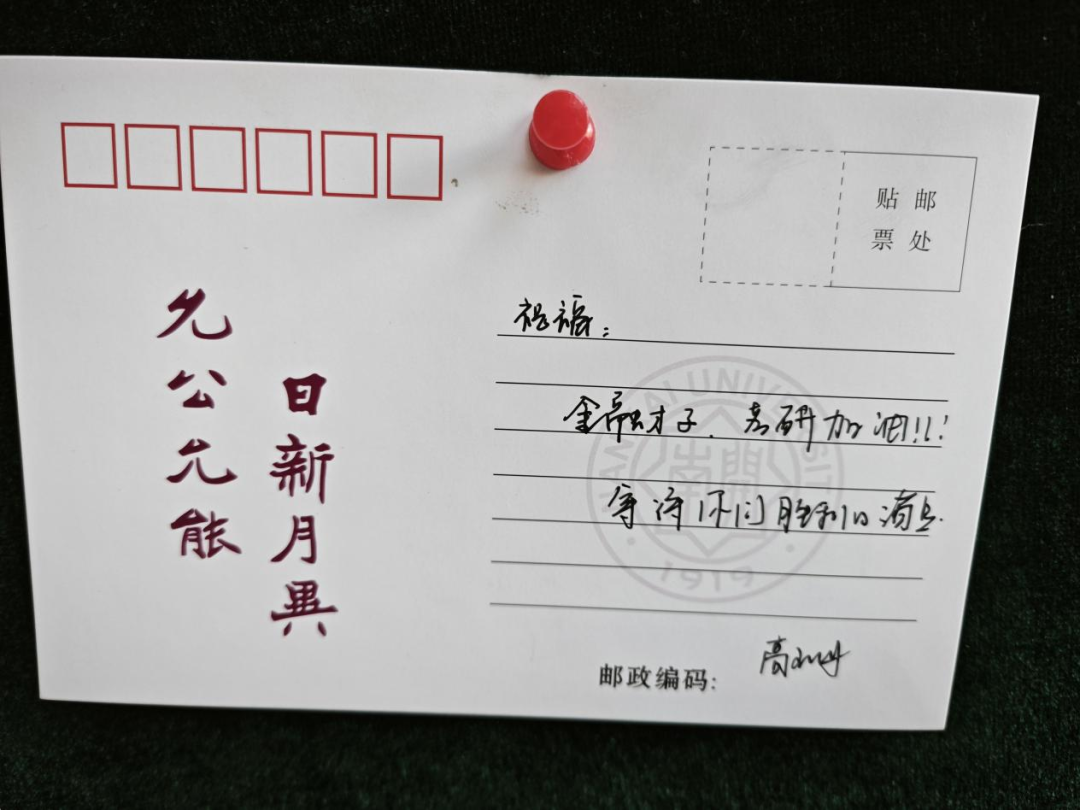 贴 邮
票 处
允公允能
日新月異
祝福：
金融才子．考研加油!!!
等待你们胜利的消息.
NANKAI UNIVERSITY
南開
1919
邮政编码:
高